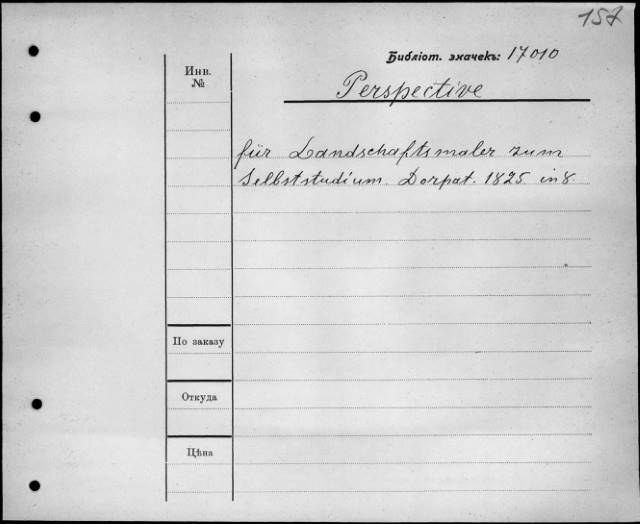 157
Библіот. значекъ: 17010
Инв.
№
Perspective
für Landschaftsmaler zum
Selbststudium. Dorpat. 1825. in 8.
По заказу
Откуда
Цѣна